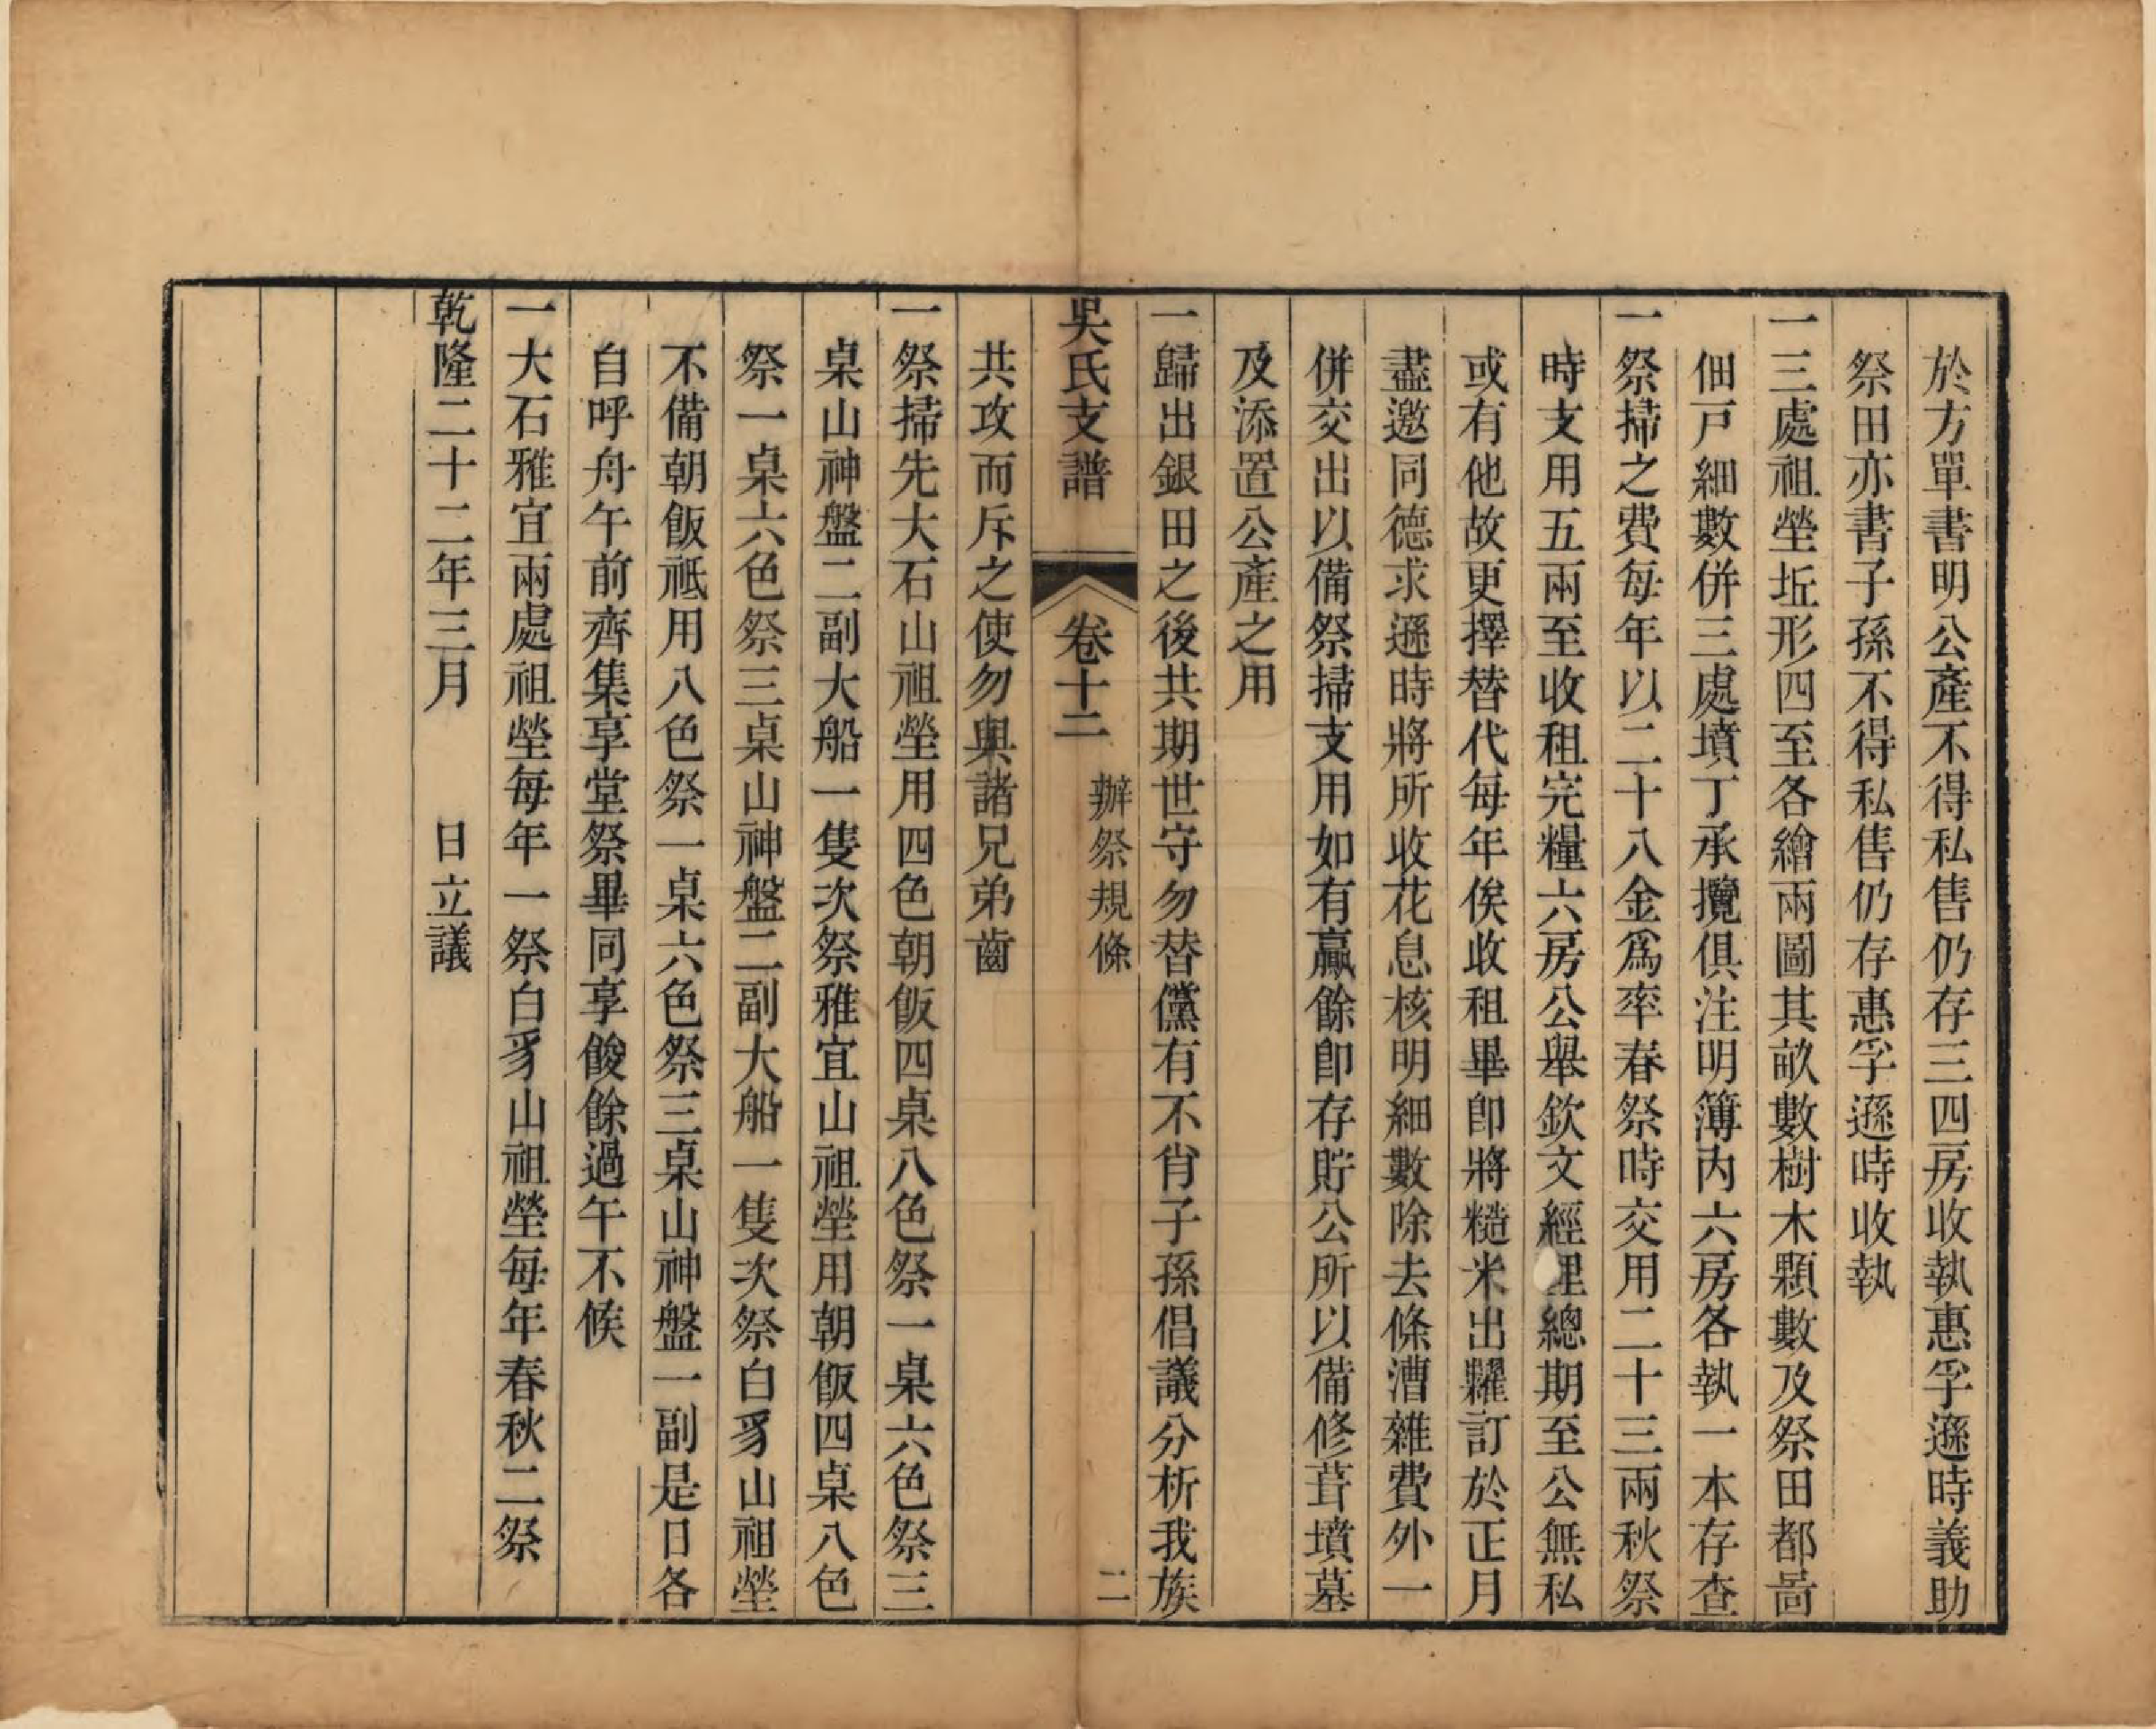 於方單書明公產不得私售仍存三四房收執惠孚遜時義助
祭田亦書子孫不得私售仍存惠孚遜時收執
一三處祖塋坵形四至各繪兩圖其畝數樹木顆數及祭田都啚
佃戸細數併三處墳丁承攬俱注明簿內六房各執一本存查
一祭掃之費每年以二十八金爲率春祭時交用二十三兩秋祭
時支用五兩至收租完糧六房公舉欽文經理總期至公無私
或有他故更擇替代每年俟收租畢卽將糙米出糶訂於正月
盡邀同德求遜時將所收花息核明細數除去條漕雜費外一
併交出以備祭掃支用如有贏餘卽存貯公所以備修葺墳墓
及添置公產之用
一歸出銀田之後共期世守勿替儻有不肖子孫倡議分析我族
吳氏支譜 卷十二 辦祭規條 二
共攻而斥之使勿與諸兄弟齒
一祭掃先大石山祖塋用四色朝飯四桌八色祭一桌六色祭三
桌山神盤二副大船一隻次祭雅宜山祖塋用朝飯四桌八色
祭一桌六色祭三桌山神盤二副大船一隻次祭白豸山祖塋
不備朝飯祗用八色祭一桌六色祭三桌山神盤一副是日各
自呼舟午前齊集享堂祭畢同享餕餘過午不候
一大石雅宜兩處祖塋每年一祭白豸山祖塋每年春秋二祭
乾隆二十二年三月 日立議